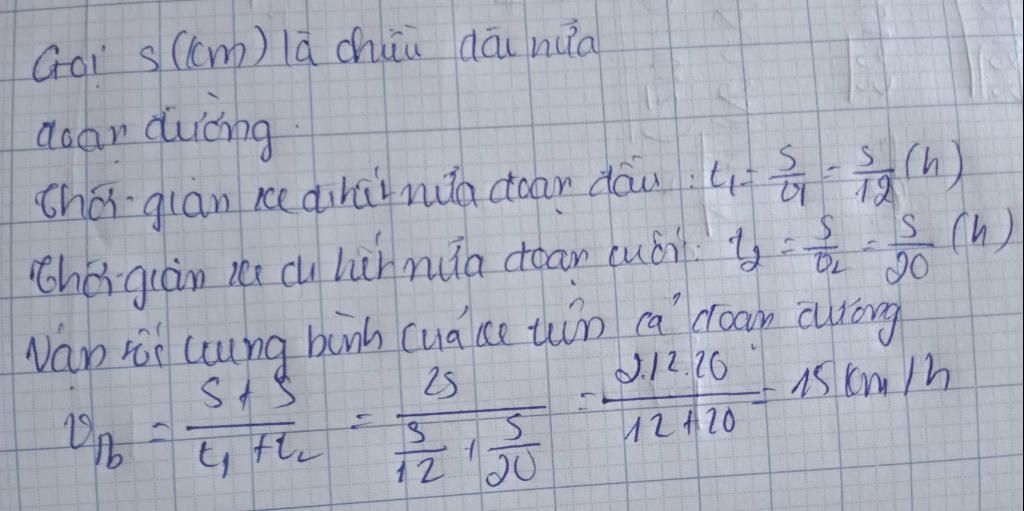 Gọi s(km) là chiều dài nửa
đoạn đường.
Thời gian xe đi hết nửa đoạn đầu : t₁ = s/v₁ = s/12 (h)
Thời gian xe đi hết nửa đoạn cuối: t₂ = s/v₂ = s/20 (h)
Vận tốc trung bình của xe trên cả đoạn đường
v_tb = (s + s)/(t₁ + t₂) = 2s/(s/12 + s/20) = 2.12.20/(12+20) = 15 km/h